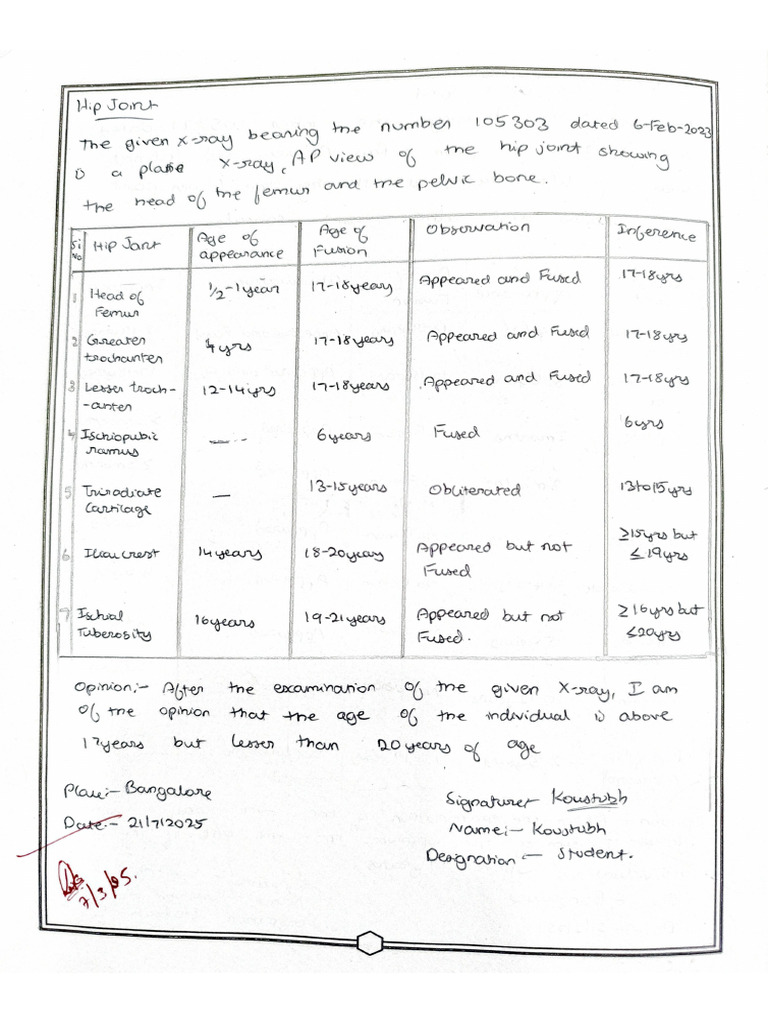 Hip Joint
The given x-ray bearing the number 105303 dated 6-Feb-2023
is a plane x-ray, AP view of the hip joint showing
the head of the femur and the pelvic bone.
Sl No Hip Joint Age of appearance Age of Fusion Observation Inference
1 Head of Femur 1/2-1year 17-18years Appeared and Fused 17-18yrs
2 Greater trochanter 4 yrs 17-18years Appeared and Fused 17-18yrs
3 Lesser troch--anter 12-14yrs 17-18years Appeared and Fused 17-18yrs
4 Ischiopubic ramus — 6years Fused 6yrs
5 Triradiate Cartilage — 13-15years Obliterated 13to15yrs
6 Iliac crest 14years 18-20years Appeared but not Fused ≥15yrs but ≤19yrs
7 Ischial Tuberosity 16years 19-21years Appeared but not Fused. ≥16yrs but ≤20yrs
Opinion:- After the examination of the given X-ray, I am
of the opinion that the age of the individual is above
17years but lesser than 20years of age
Place:- Bangalore
Date:- 21/7/2025
Signature:- Koustubh
Name:- Koustubh
Designation:- Student.